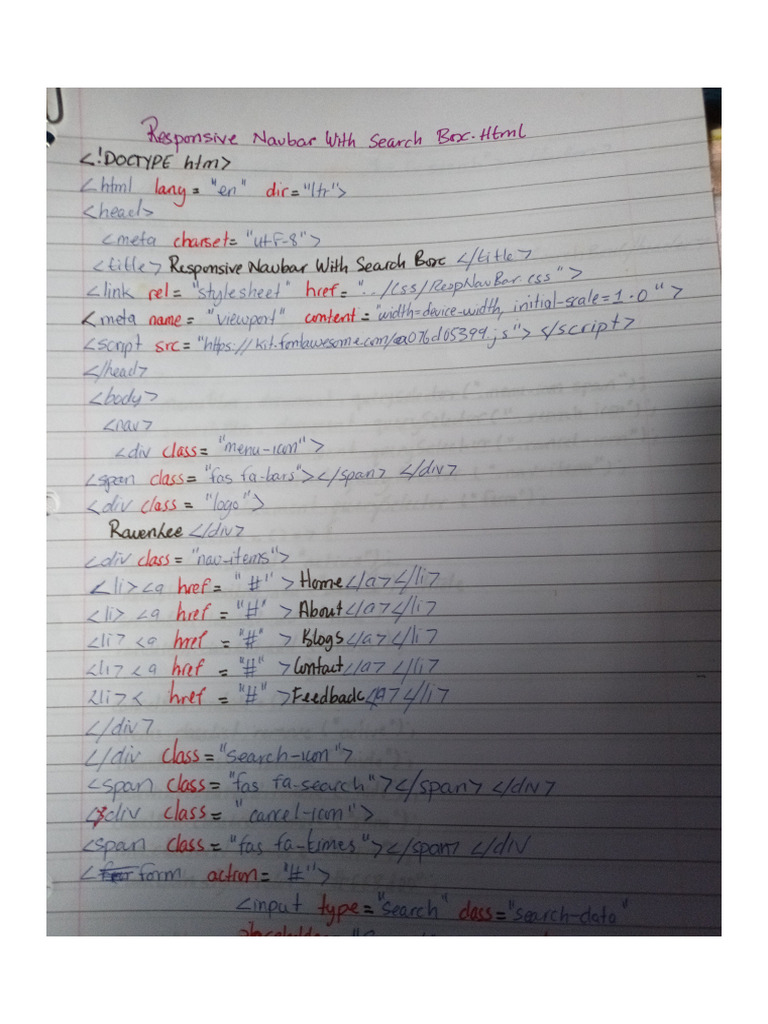 Responsive Navbar With Search Box.Html
<!DOCTYPE htm>
<html lang = "en" dir = "ltr">
<head>
<meta charset = "utf-8">
<title> Responsive Navbar With Search Box </title>
<link rel = "stylesheet" href = "../css/RespNavBar.css">
<meta name = "viewport" content = "width=device-width, initial-scale=1.0">
<script src = "https://kit.fontawesome.com/aa076d05399.js"></script>
</head>
<body>
<nav>
<div class = "menu-icon">
<span class = "fas fa-bars"></span> </div>
<div class = "logo">
RavenLee </div>
<div class = "nav-items">
<li><a href = "#"> Home</a></li>
<li> <a href = "#" > About</a></li>
<li> <a href = "#" > Blogs</a></li>
<li> <a href = "#" > Contact</a></li>
<li> < href = "#" > Feedback</a></li>
</div>
</div class = "search-icon">
<span class = "fas fa-search"></span> </div>
<div class = "cancel-icon">
<span class = "fas fa-times"></span> </div
<form action = "#">
<input type = "search" class = "search-data"